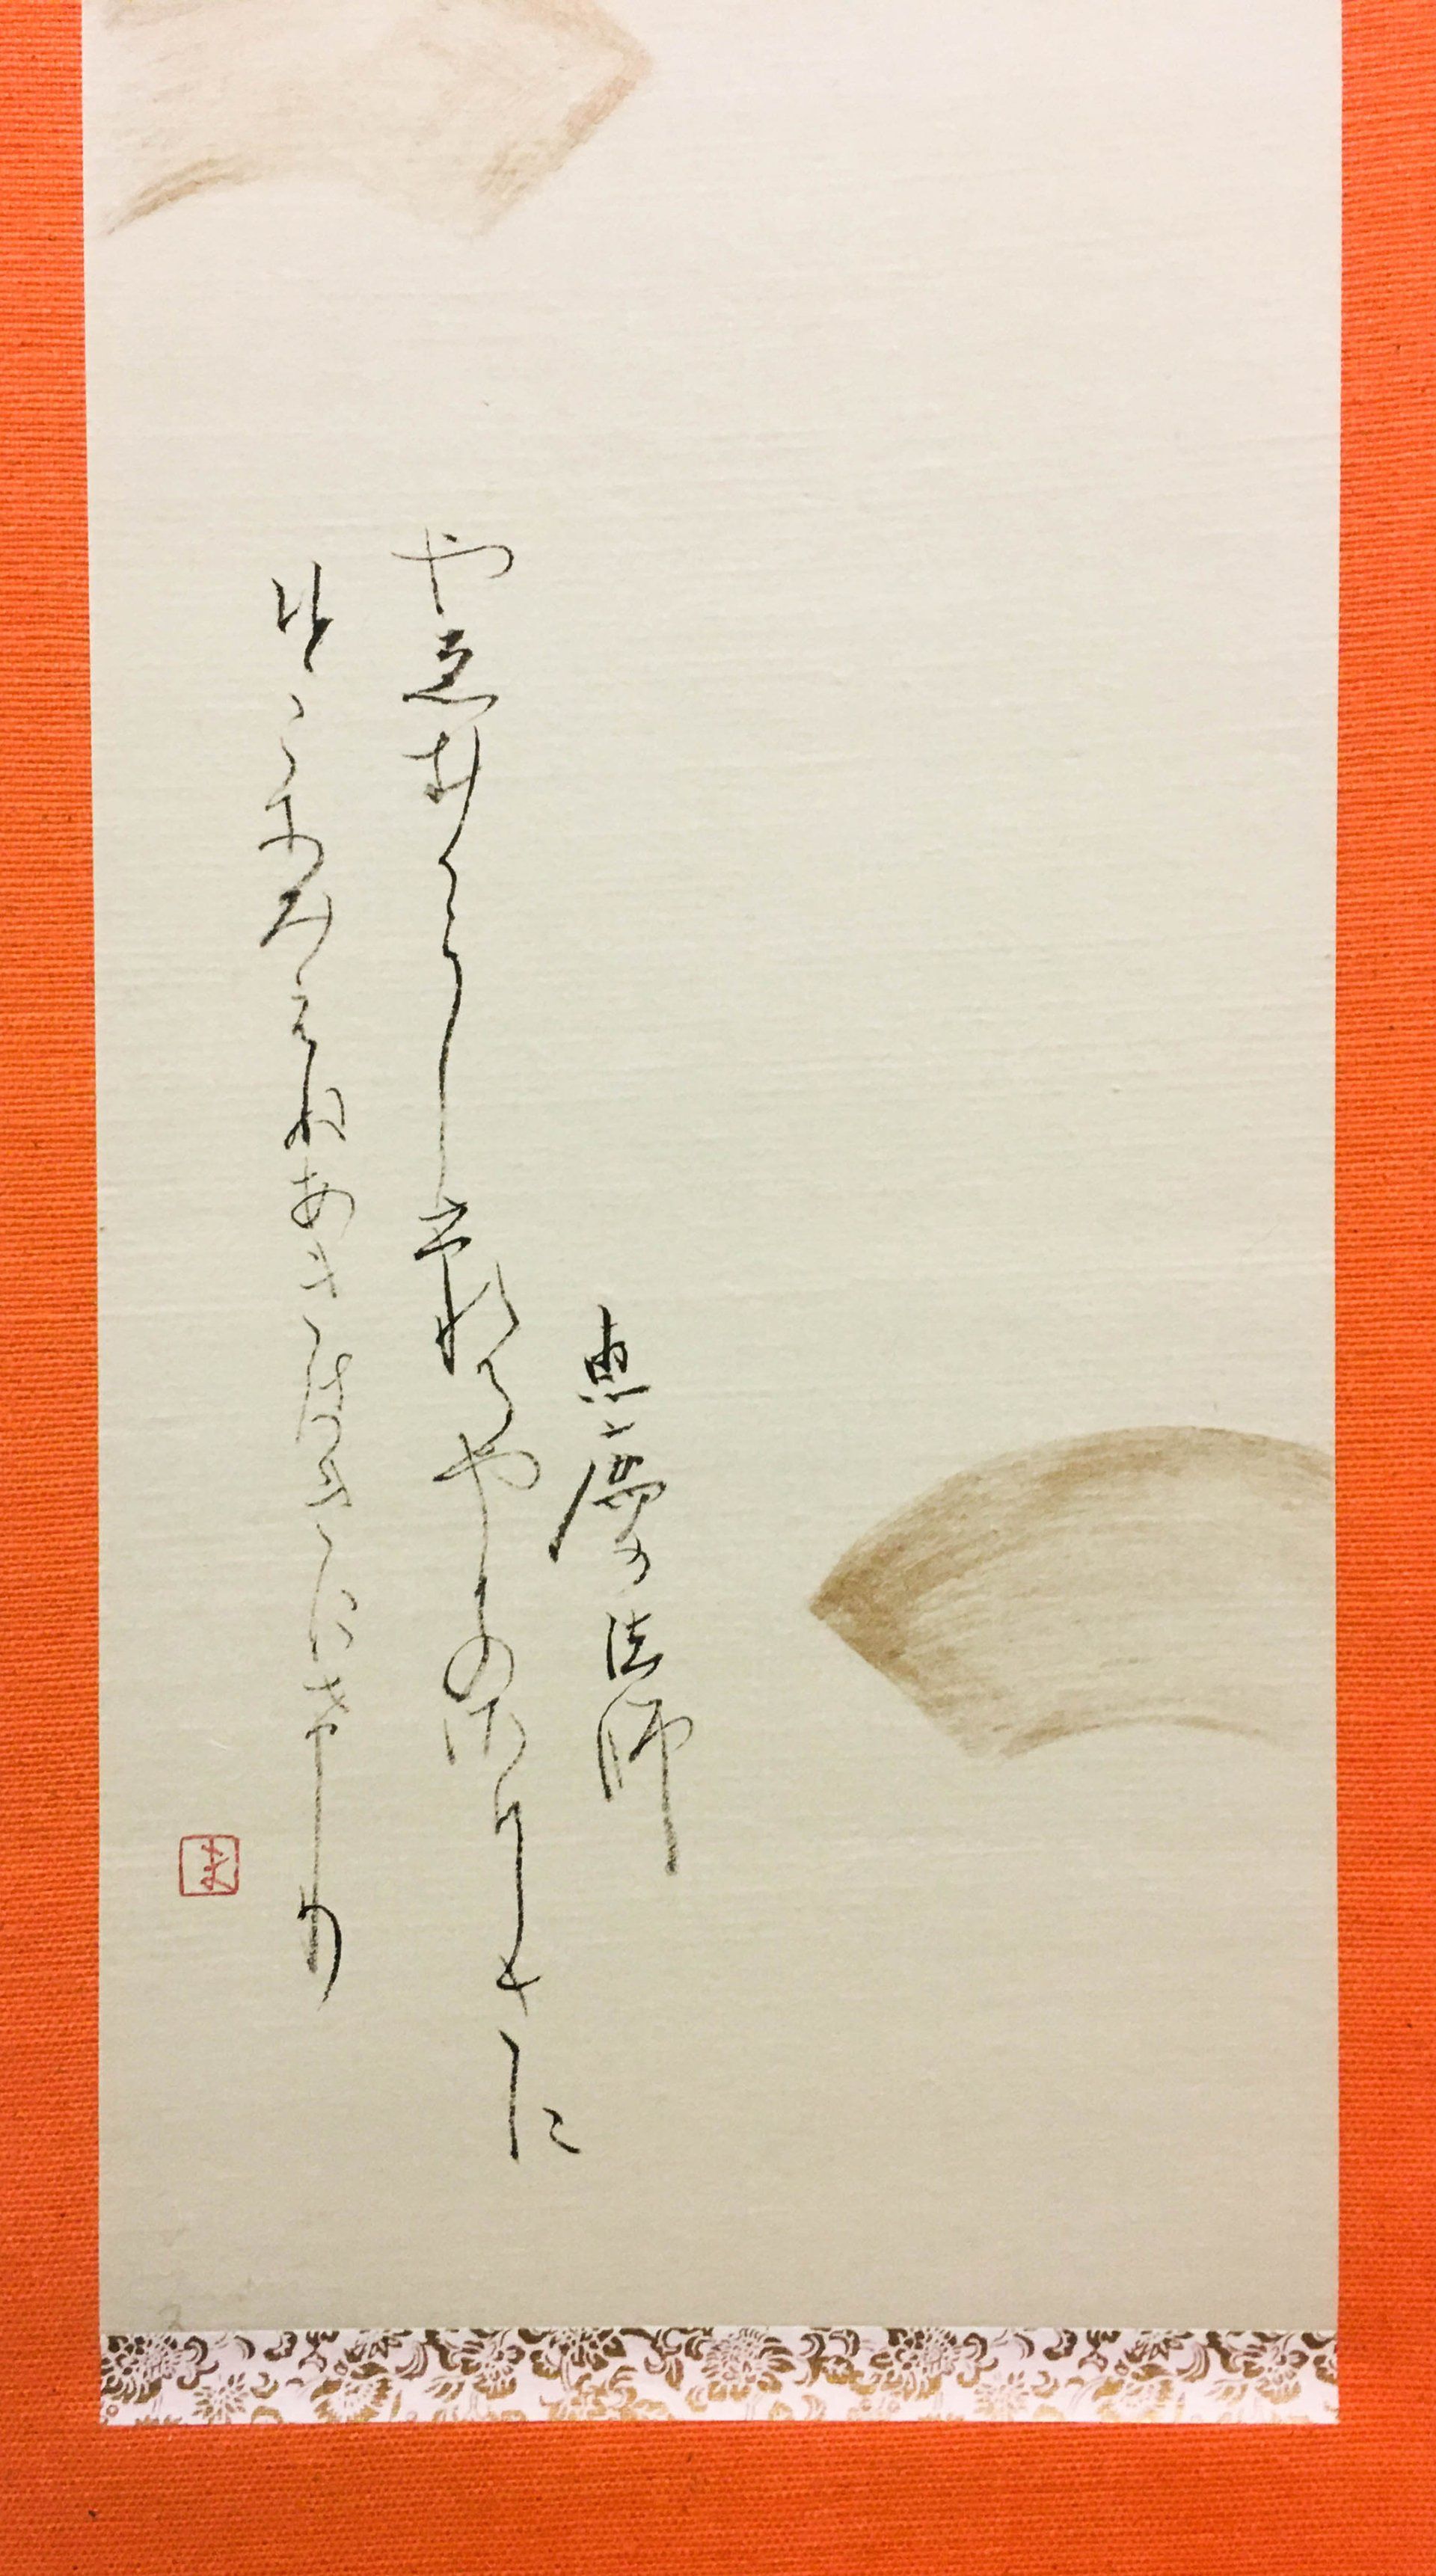 恵慶法師
やゑむくらしけれるやとのさひしきに
ひとこそみえねあきはきにけり